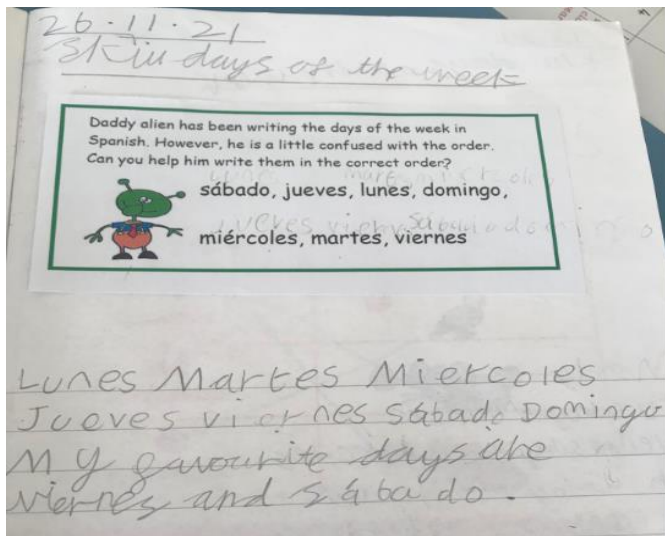 26.11.21
Skill days of the week
Daddy alien has been writing the days of the week in
Spanish. However, he is a little confused with the order.
Can you help him write them in the correct order?
sábado, jueves, lunes, domingo,
miércoles, martes, viernes
Lunes Martes Miercoles
Jueves viernes sábado Domingo
My favourite days are
viernes and sábado.